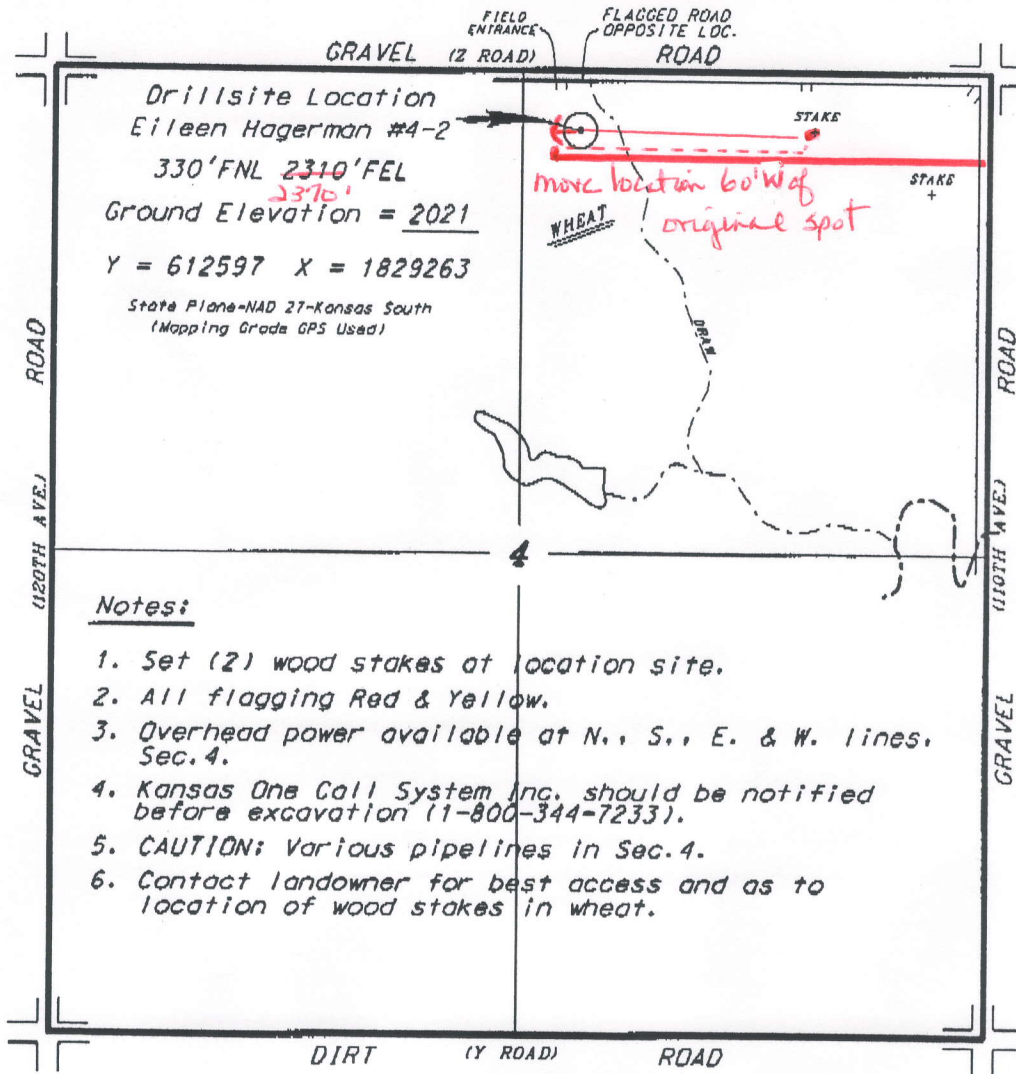 FIELD
ENTRANCE
FLAGGED ROAD
OPPOSITE LOC.
GRAVEL (Z ROAD) ROAD
Drillsite Location
Eileen Hagerman #4-2
330'FNL 2310'FEL
2370'
Ground Elevation = 2021
Y = 612597 X = 1829263
State Plane-NAD 27-Kansas South
(Mapping Grade GPS Used)
STAKE
STAKE
move location 60'W of
original spot
WHEAT
DRAW
GRAVEL (120TH AVE.) ROAD
GRAVEL (110TH AVE.) ROAD
4
Notes:
1. Set (2) wood stakes at location site.
2. All flagging Red & Yellow.
3. Overhead power available at N., S., E. & W. lines,
Sec.4.
4. Kansas One Call System Inc. should be notified
before excavation (1-800-344-7233).
5. CAUTION: Various pipelines in Sec.4.
6. Contact landowner for best access and as to
location of wood stakes in wheat.
DIRT (Y ROAD) ROAD